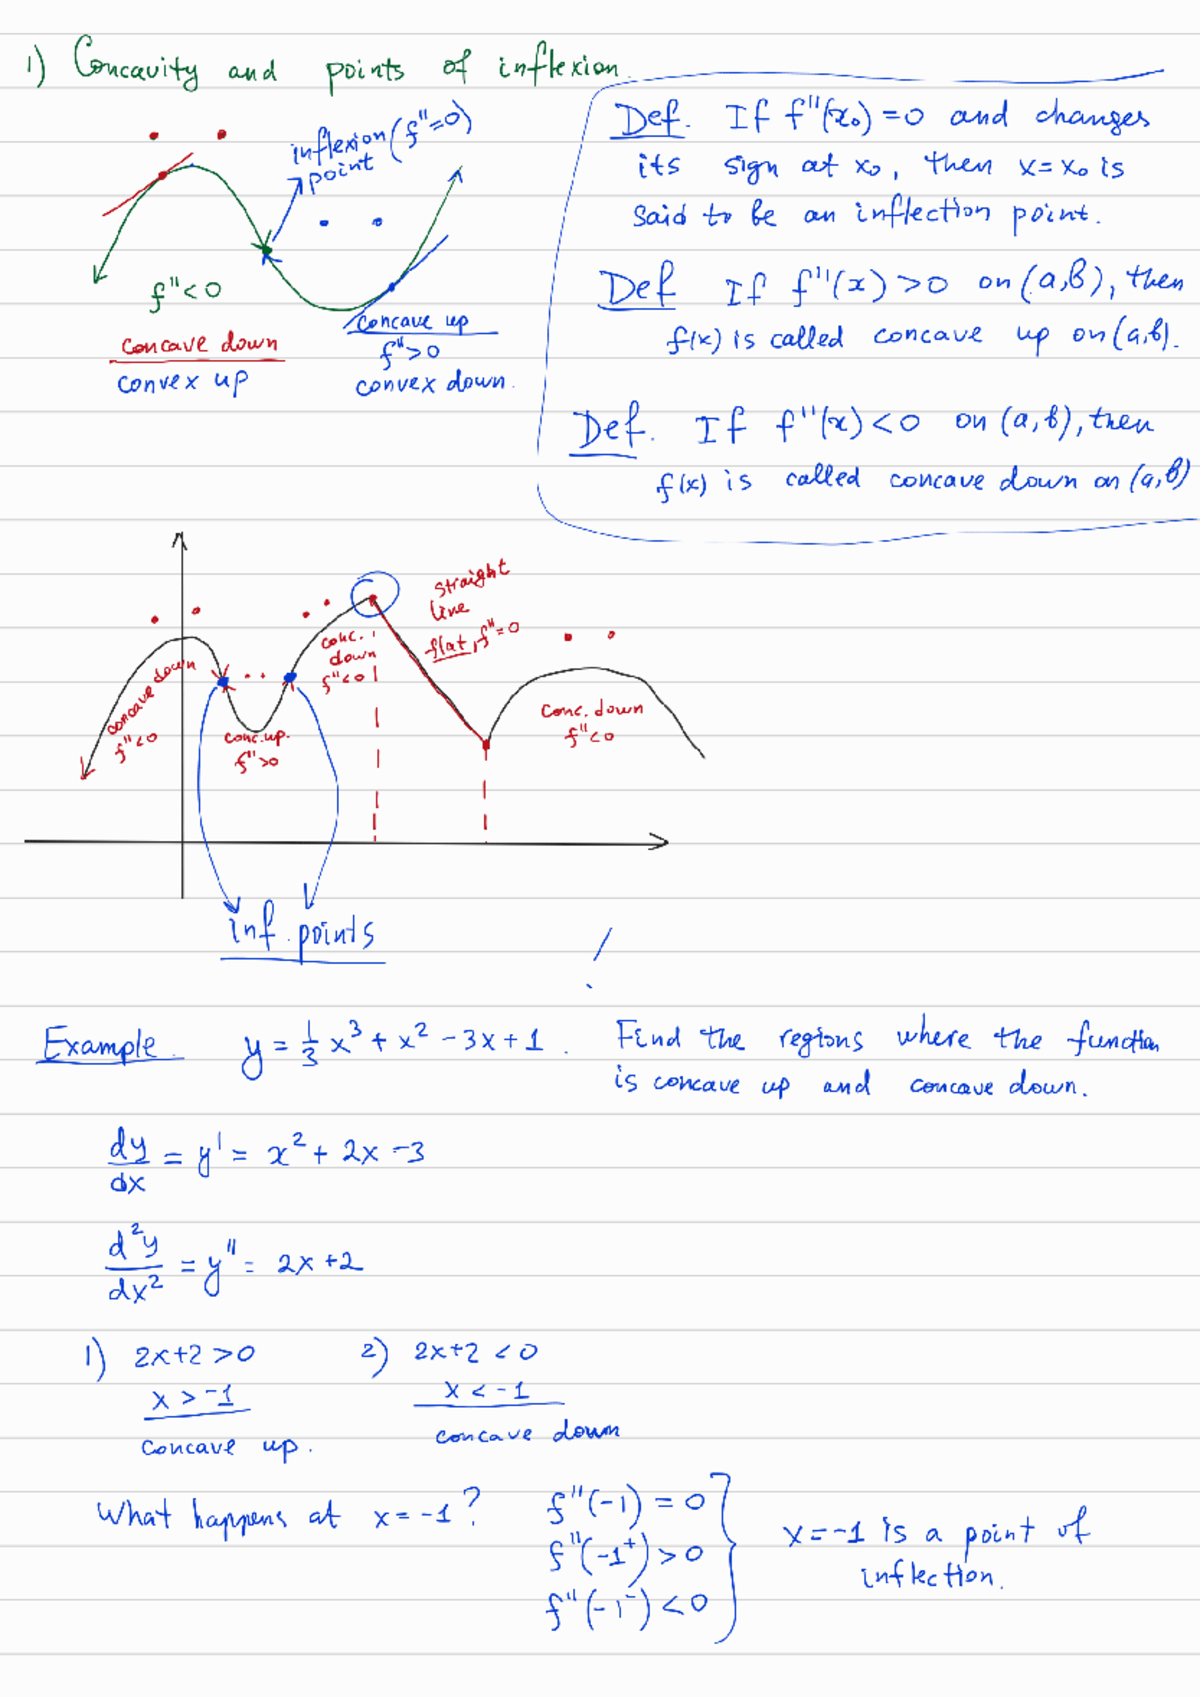 1) Concavity and points of inflexion.
inflexion (f''=0)
point
f''<0
concave down
convex up
concave up
f''>0
convex down.
Def. If f''(x₀)=0 and changes
its sign at x₀, then x=x₀ is
said to be an inflection point.
Def If f''(x)>0 on (a,b), then
f(x) is called concave up on (a,b).
Def. If f''(x)<0 on (a,b), then
f(x) is called concave down on (a,b)
concave down
f''<0
conc. up.
f''>0
conc.
down
f''<0
straight
line
flat, f''=0
conc. down
f''<0
inf. points
!
Example. y = 1/3 x³ + x² - 3x + 1. Find the regions where the function
is concave up and concave down.
dy/dx = y' = x² + 2x - 3
d²y/dx² = y'' = 2x + 2
1) 2x+2 > 0 2) 2x+2 < 0
x > -1 x < -1
concave up. concave down
What happens at x = -1?
f''(-1) = 0
f''(-1⁺) > 0
f''(-1⁻) < 0
x = -1 is a point of
inflection.